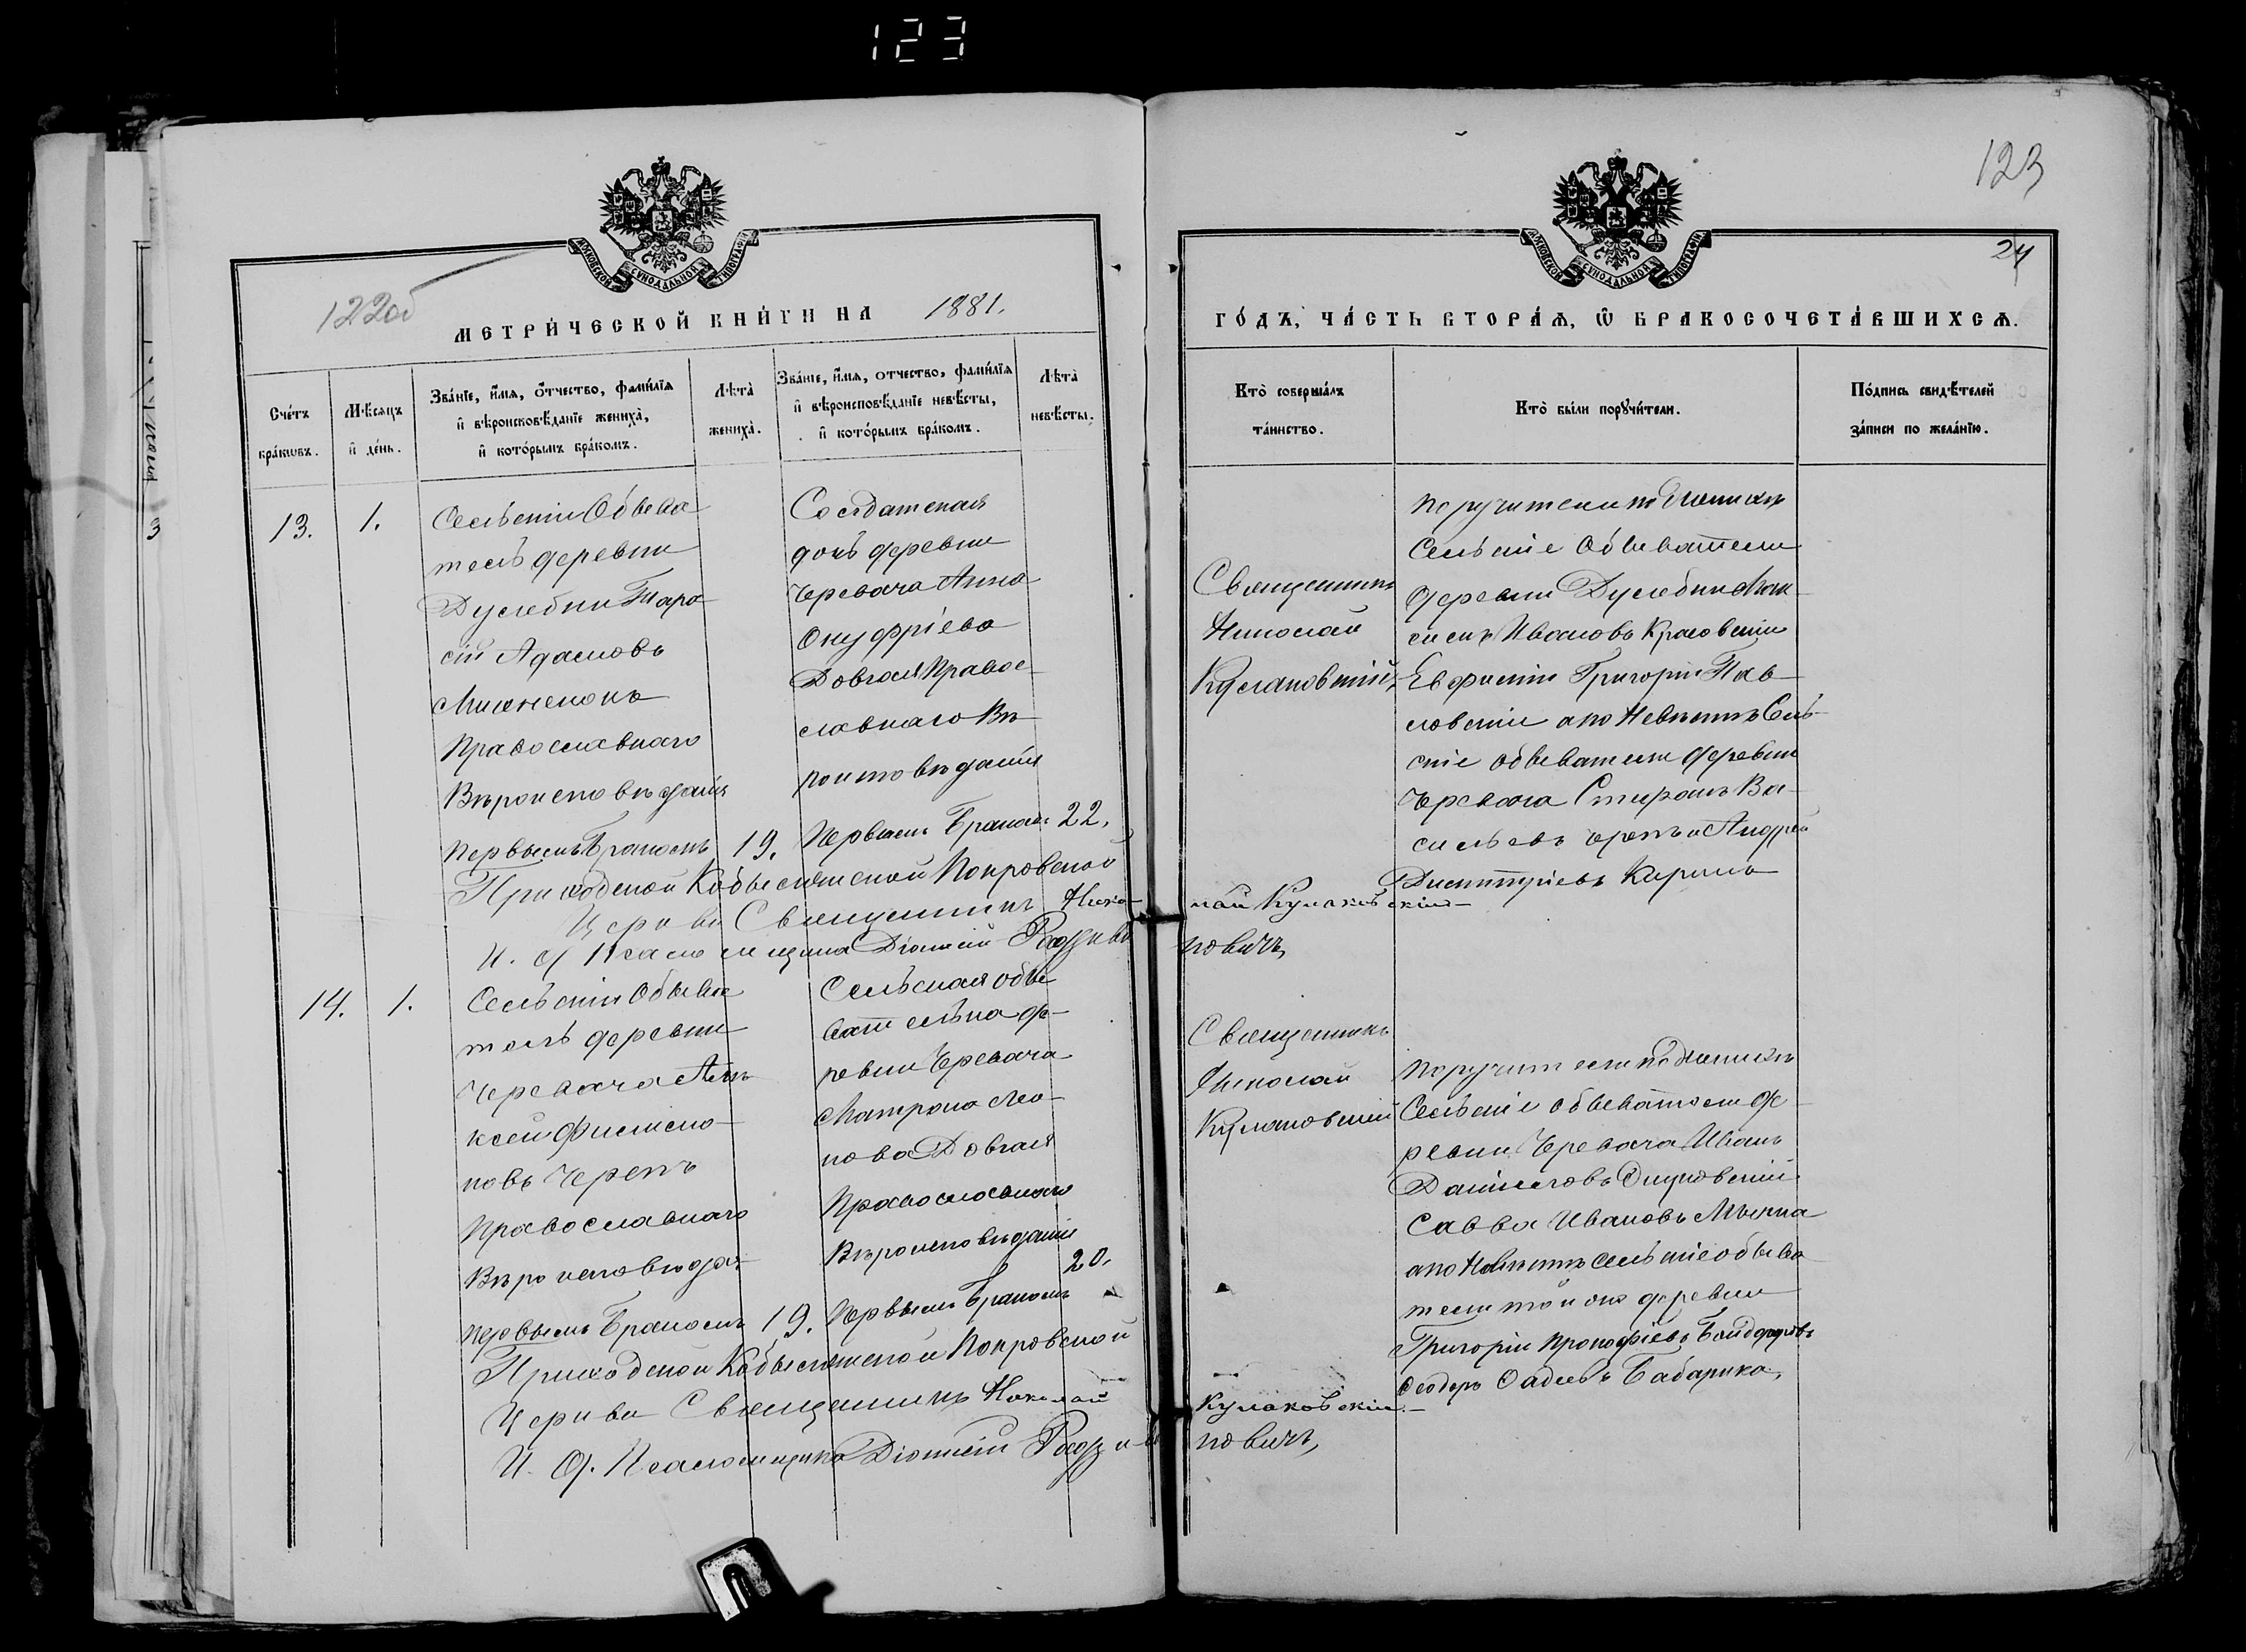 123
123
24
122об
МЕТРИ́ЧЕСКОЙ КНИ́ГИ НА 1881.
ГО́ДЪ, ЧА́СТЬ ВТОРА́Ѧ, Ѽ БРАКОСОЧЕТА́ВШИХСѦ.
МОСКОВСКОЙ СѴНОДАЛЬНОЙ ТИПОГРАФІИ
МОСКОВСКОЙ СѴНОДАЛЬНОЙ ТИПОГРАФІИ
Сче́тъ бра́ковъ.
Мѣ́сяцъ и де́нь.
Зва́нїе, и́мя, о́тчество, фами́лїя и вѣроисповѣ́данїе жениха̀, и кото́рымъ бра́комъ.
Лѣта̀ жениха̀.
Зва́нїе, и́мя, отчество, фами́лїя и вѣроисповѣ́данїе невѣ́сты, и кото́рымъ бра́комъ.
Лѣта̀ невѣ́сты.
Кто̀ соверша́лъ та́инство.
Кто̀ бы́ли порꙋчи́тели.
По́дпись свидѣ́телей за́писи по жела́нїю.
13.
1.
Сельскій Обыва-
тель деревни
Дуслебни Тара-
сій Адамовъ
Православнаго
Вѣроисповѣданія
первымъ бракомъ
19.
Солдатская
дочь деревни
Черевача Анна
Онуфріева
Довгая Правос-
лавнаго Вѣ-
роисповѣданія
Первымъ бракомъ
22.
Священникъ
Николай
Кулаковскій
поручители по Женихѣ
Сельскіе Обыватели
деревни Дуслебни Мак-
симъ Ивановъ
Григорій Пав-
ловскій а по Невѣстѣ Сель-
скіе обыватели деревни
Черевача Ва-
сильевъ Черепъ и Андрей
Димитріевъ
Приходской Покровской
Церкви Священникъ Нико-
лай Кулаковскій
И. д Псаломщика Діонисій
новичъ,
14.
1.
Сельскій Обыва-
тель деревни
Черевача Але-
ксей
новъ Черепъ
Православнаго
Вѣроисповѣда-
первымъ бракомъ
19.
Сельская обы-
вателька де-
ревни Черевача
Матрона
нова Довгая
Православнаго
Вѣроисповѣданія
Первымъ бракомъ
20.
Священникъ
Николай
Кулаковскій
Поручители по Женихѣ
Сельскіе обыватели де-
ревни Черевача Иванъ
Даниловъ
Савва Ивановъ
а по Невѣстѣ сельскіе обыва-
тели той же деревни
Григорій Прокофіевъ
Ѳеодоръ Бабарика,
Приходской Покровской
Церкви Священникъ Николай
Кулаковскій
И. д. Псаломщика Діонисій
новичъ,